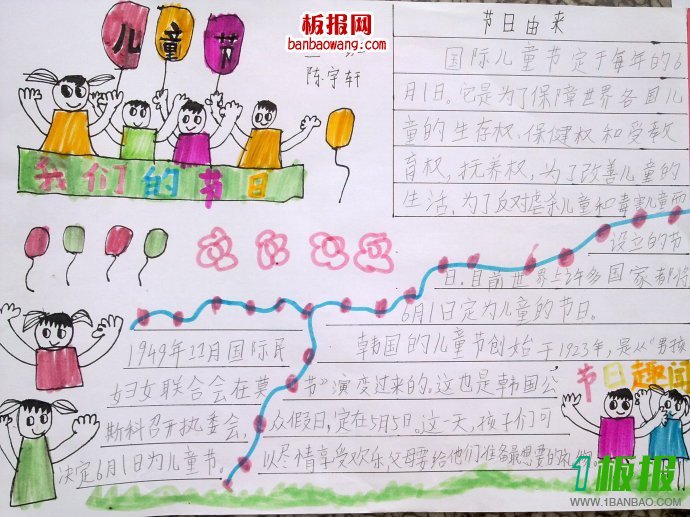 板报网
banbaowang.com
儿童节
陈宇轩
我们的节日
节日由来
国际儿童节定于每年的6
月1日。它是为了保障世界各国儿
童的生存权、保健权和受教
育权，抚养权，为了改善儿童的
生活，为了反对虐杀儿童和毒害儿童而
设立的节
日。目前世界上许多国家都将
6月1日定为儿童的节日。
1949年11月国际民
妇女联合会在莫
斯科召开执委会，
决定6月1日为儿童节。
韩国的儿童节创始于1923年，是从“男孩
节”演变过来的。这也是韩国公
众假日，定在5月5日。这一天，孩子们可
以尽情享受欢乐，父母要给他们准备最想要的礼物。
节日趣闻
1板报
WWW.1BANBAO.COM